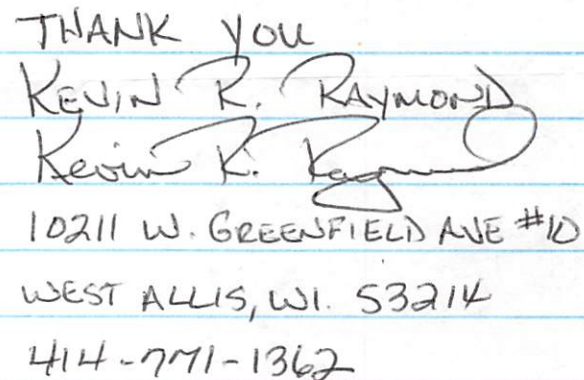 THANK YOU
KEVIN R. RAYMOND
Kevin R. Raymond
10211 W. GREENFIELD AVE #10
WEST ALLIS, WI. 53214
414-771-1362